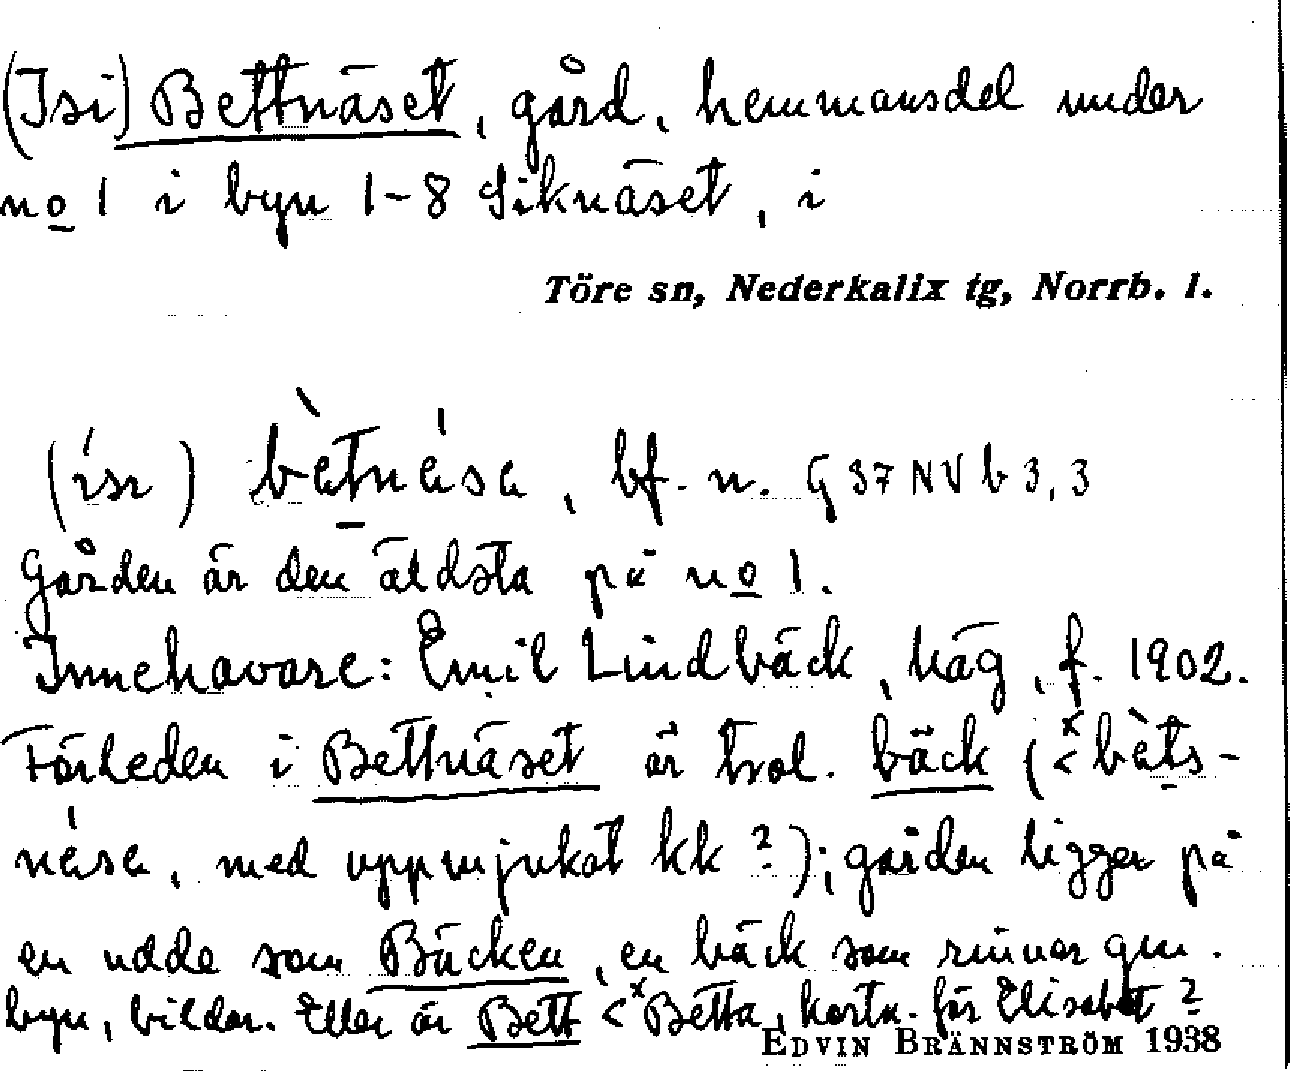 (Isi) Bettnäset, gård, hemmansdel under
no 1 i byn 1-8 Siknäset, i
Töre sn, Nederkalix tg, Norrb. l.
bf. n. G 37 NV b 3, 3
Gården är den äldsta på no 1.
Innehavare: Emil Lindbäck, häg, f. 1902.
Förleden i Bettnäset är trol. bäck (<
med uppmjukat kk?); gården ligger på
en udde som Bäcken, en bäck som rinner gm.
byn, bildar. Eller är Bett < x Betta, kortn. för Elisabet?
EDVIN BRÄNNSTRÖM 1938